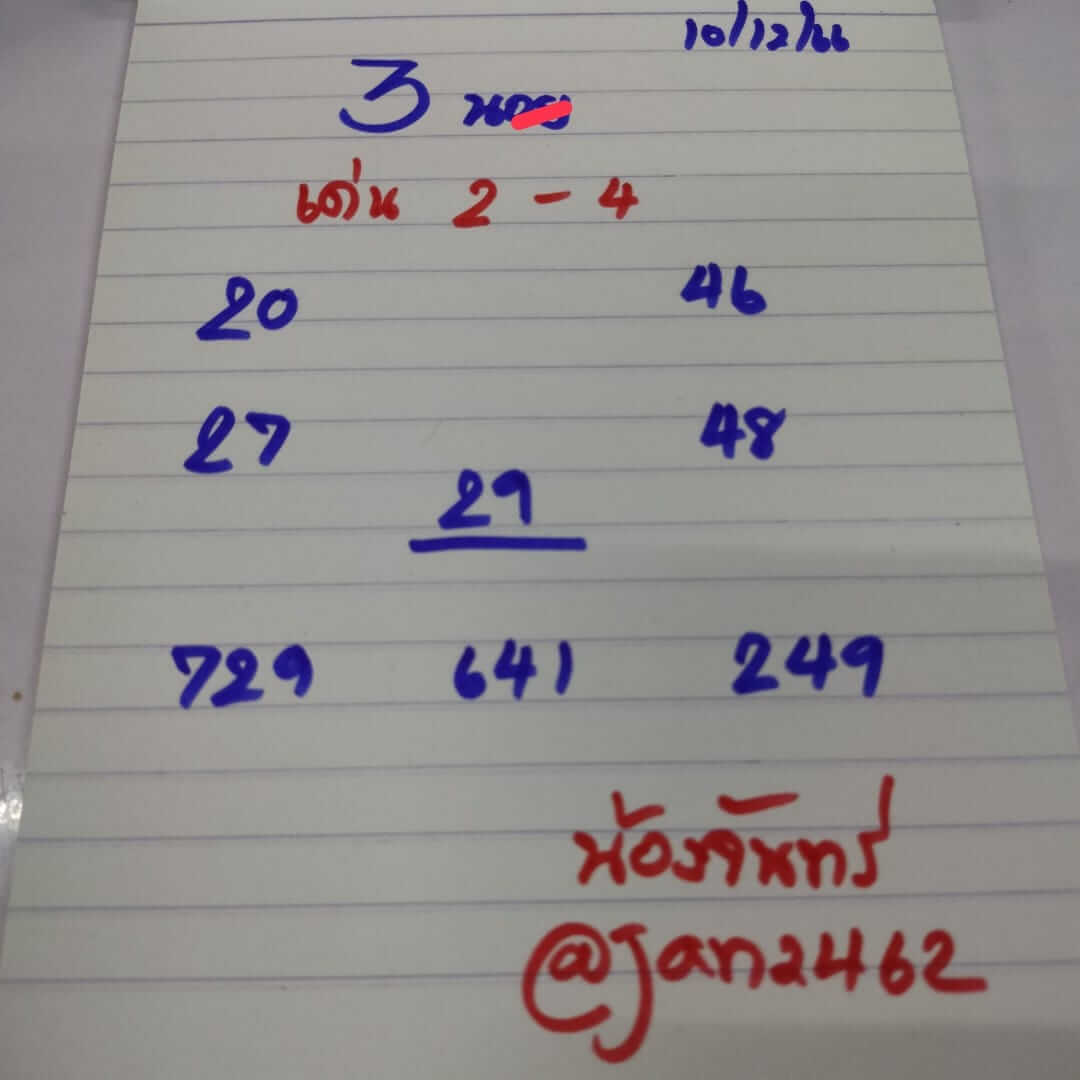 10/12/66
3
เด่น 2 - 4
20 46
27 48
29
729 641 249
น้องจันทร์
@Jan2462